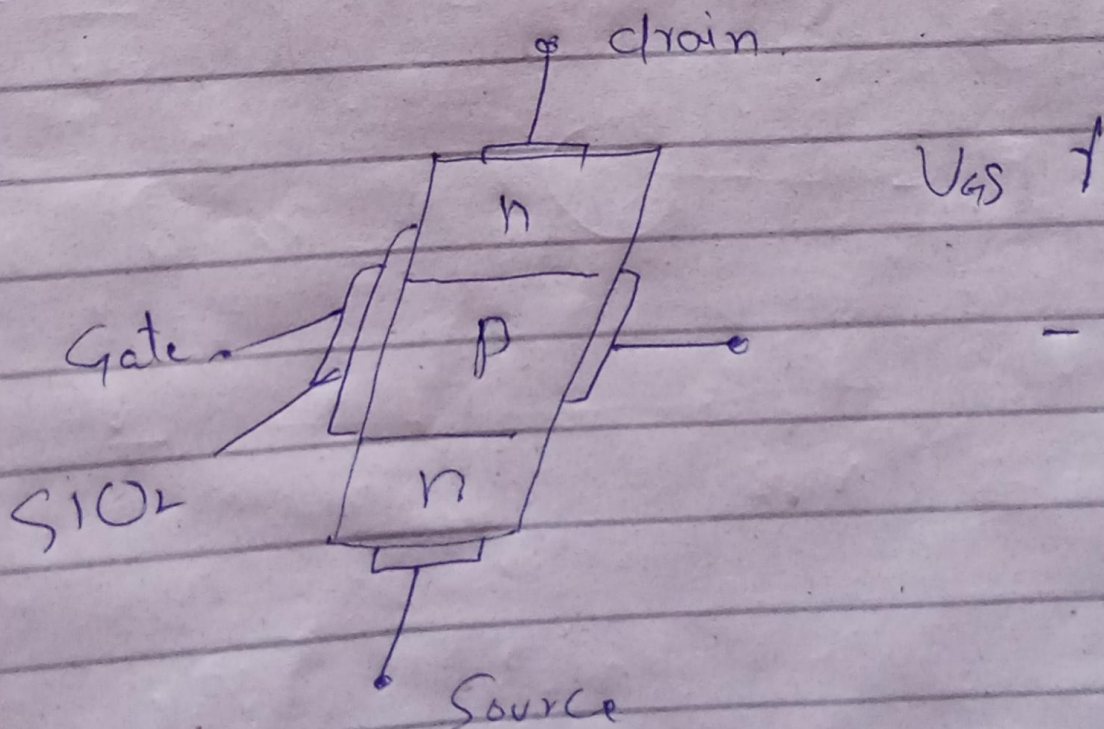 drain
n
VGS
Gate
p
-
n
SiO2
Source